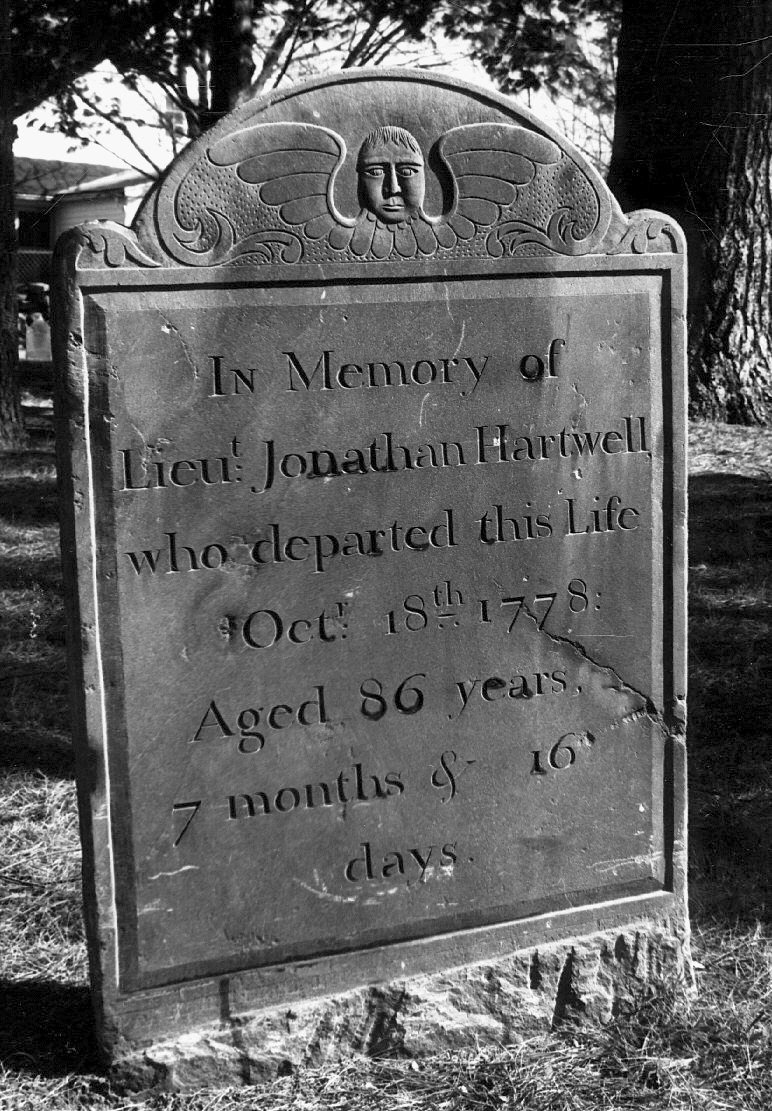 In Memory of
Lieut. Jonathan Hartwell,
who departed this Life
Octr. 18th 1778:
Aged 86 years,
7 months & 16
days.